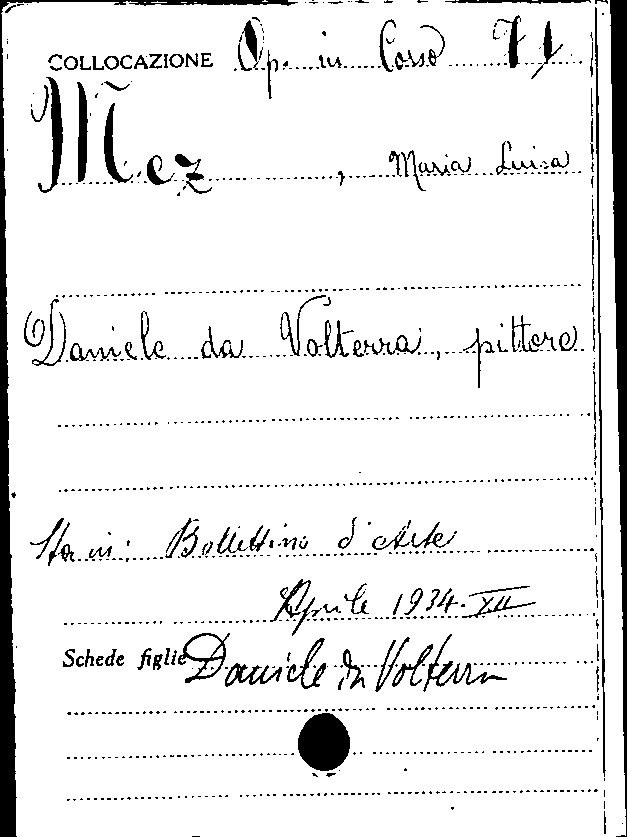 COLLOCAZIONE Op. in Corso 71
Mez, Maria Luisa
Daniele da Volterra, pittore
Sta in: Bollettino d'Arte
Aprile 1934-XII
Schede figlie Daniele da Volterra